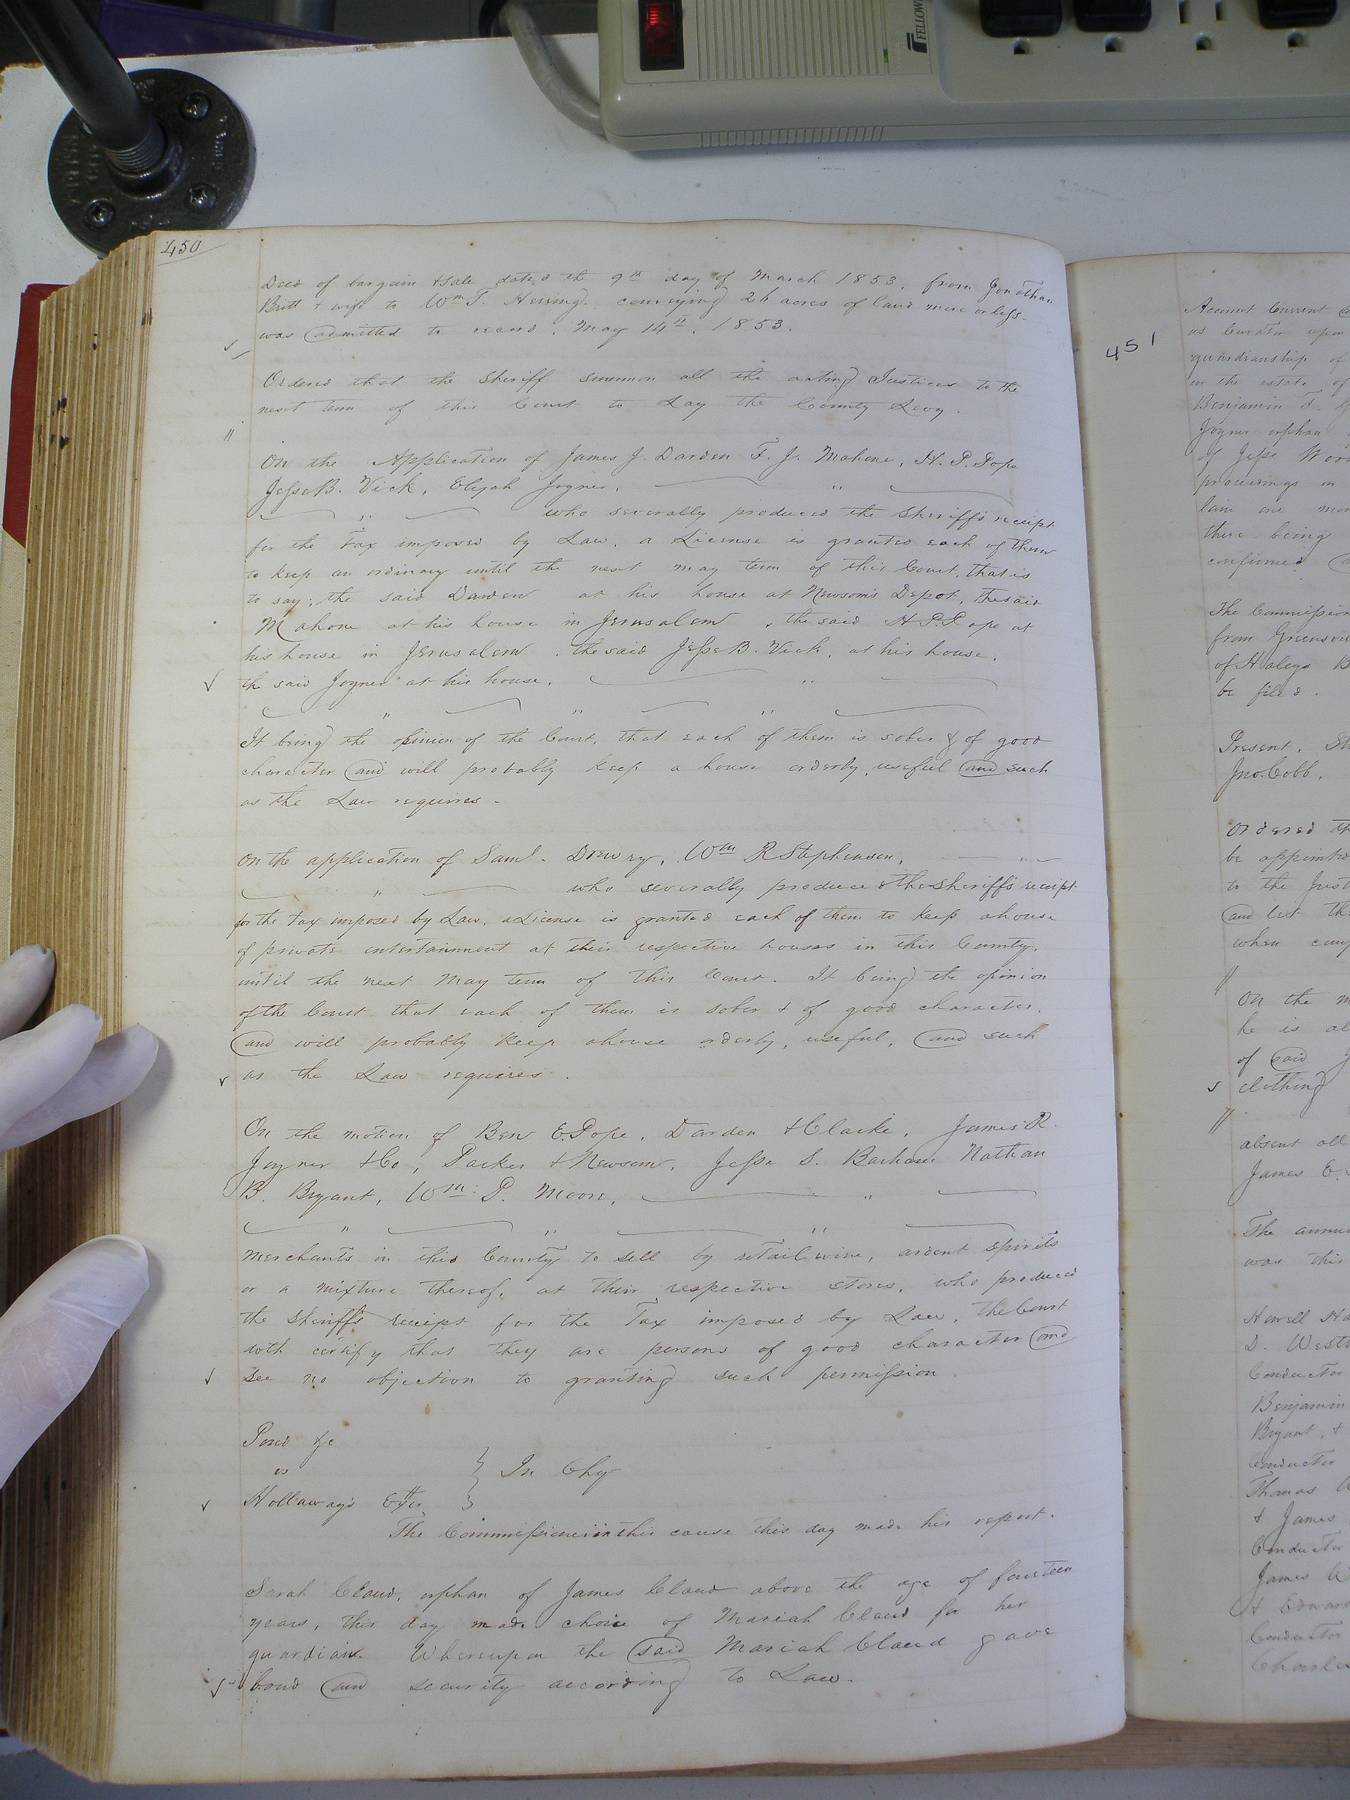 450
Deed of bargain & Sale dated the 9th day of March 1853, from Jonathan
Britt & wife to Wm T. Herring conveying 26 acres of land more or less
was admitted to record. May 14th, 1853.
Ordered that the Sheriff summon all the acting Justices to the
next term of this Court to Lay the County Levy.
On the Application of James J. Darden F. J. Mahone, H. P. Pope
Jesse B. Vick, Elijah Joyner,
who severally produced the Sheriffs receipt
for the Tax imposed by Law, a License is granted each of them
to keep an ordinary until the next may term of this Court, that is
to say; the said Darden at his house at Newsom's Depot, the said
Mahone at his house in Jerusalem, the said H. P. Pope at
his house in Jerusalem. the said Jesse B. Vick, at his house,
the said Joyner at his house,
It being the opinion of the Court, that each of them is sober & of good
character and will probably keep a house orderly, useful and such
as the Law requires.
On the application of Saml. Drewry, Wm R Stephenson,
who severally produced the Sheriffs receipt
for the tax imposed by Law, a License is granted each of them to keep a house
of private entertainment at their respective houses in this County,
until the next May term of this Court. It being the opinion
of the Court that each of them is sober & of good character,
and will probably keep a house orderly, useful, and such
as the Law requires.
On the motion of Ben E. Pope, Darden & Clarke, James R.
Joyner & Co, Parker & Newsom, Jesse S. Barham Nathan
B. Bryant, Wm. P. Moore,
merchants in this County to sell by retail wine, ardent spirits
or a mixture thereof, at their respective stores, who produced
the Sheriffs receipt for the Tax imposed by Law, the Court
doth certify that they are persons of good character and
see no objection to granting such permission
&c
vs
In Chy
Holloway's
The Commissioner in this cause this day made his report.
Sarah Claud, orphan of James Claud above the age of fourteen
years, this day made choice of Mariah Claud for her
guardian. Whereupon the said Mariah Claud gave
bond and security according to Law.
451
Account Current
as Curator upon
guardianship of
in the estate of
Benjamin
Joyner orphan
of Jesse
proceedings in
there being
confirmed
The Commission
from
of Haleys
be filed.
Present.
Jno. Cobb.
Ordered
be
to the
and let
when
On the
he is
of said
clothing
absent
James E.
The
was this
D.
Conductor
Benjamin
Bryant, &
Conductor
Thomas
& James
Conductor
James
& Edward
Conductor
FELLOWES